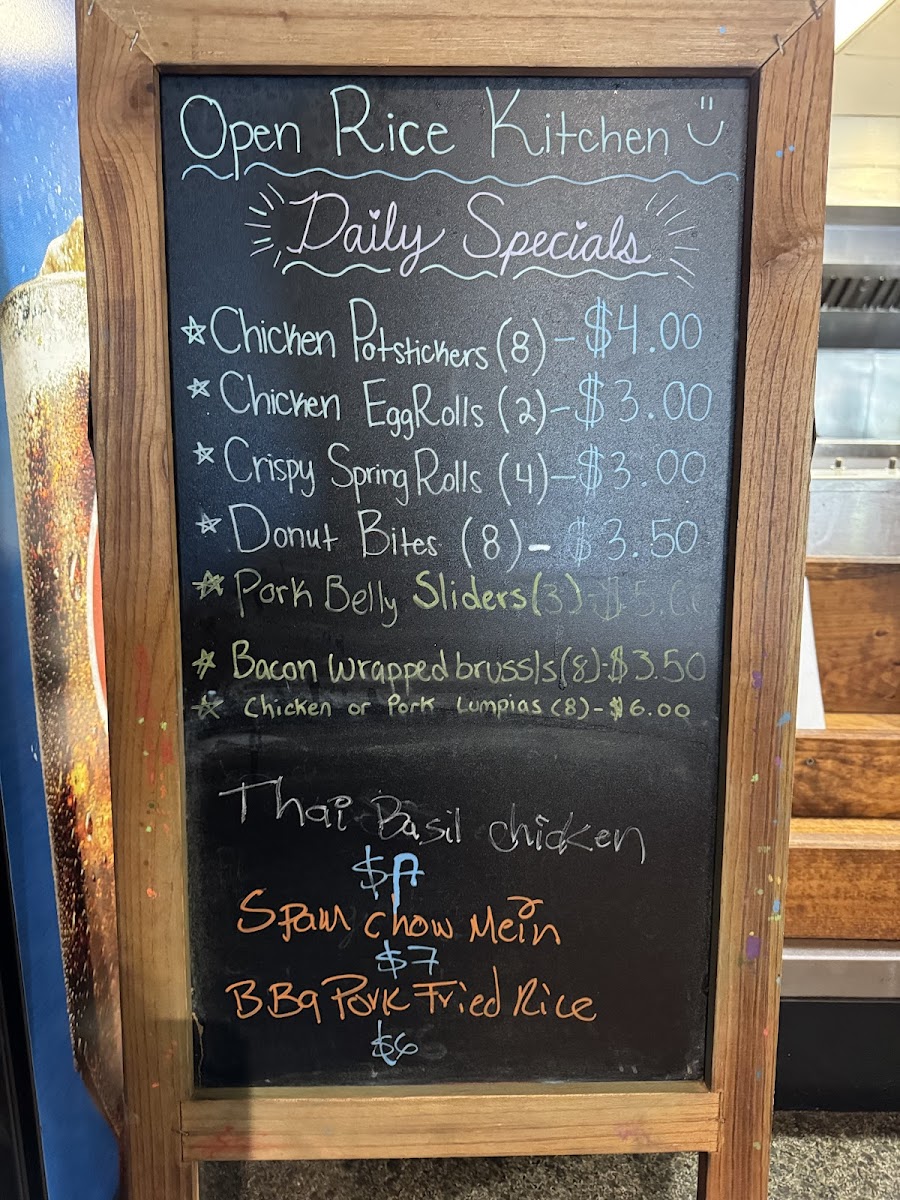 Open Rice Kitchen
Daily Specials
Chicken Potstickers (8) - $4.00
Chicken EggRolls (2) - $3.00
Crispy Spring Rolls (4) - $3.00
Donut Bites (8) - $3.50
Pork Belly Sliders (3) - $5.00
Bacon Wrapped brussls (8) - $3.50
Chicken or Pork Lumpias (8) - $6.00
Thai Basil chicken
Spam Chow Mein
$7
BBq Pork Fried Rice
$6